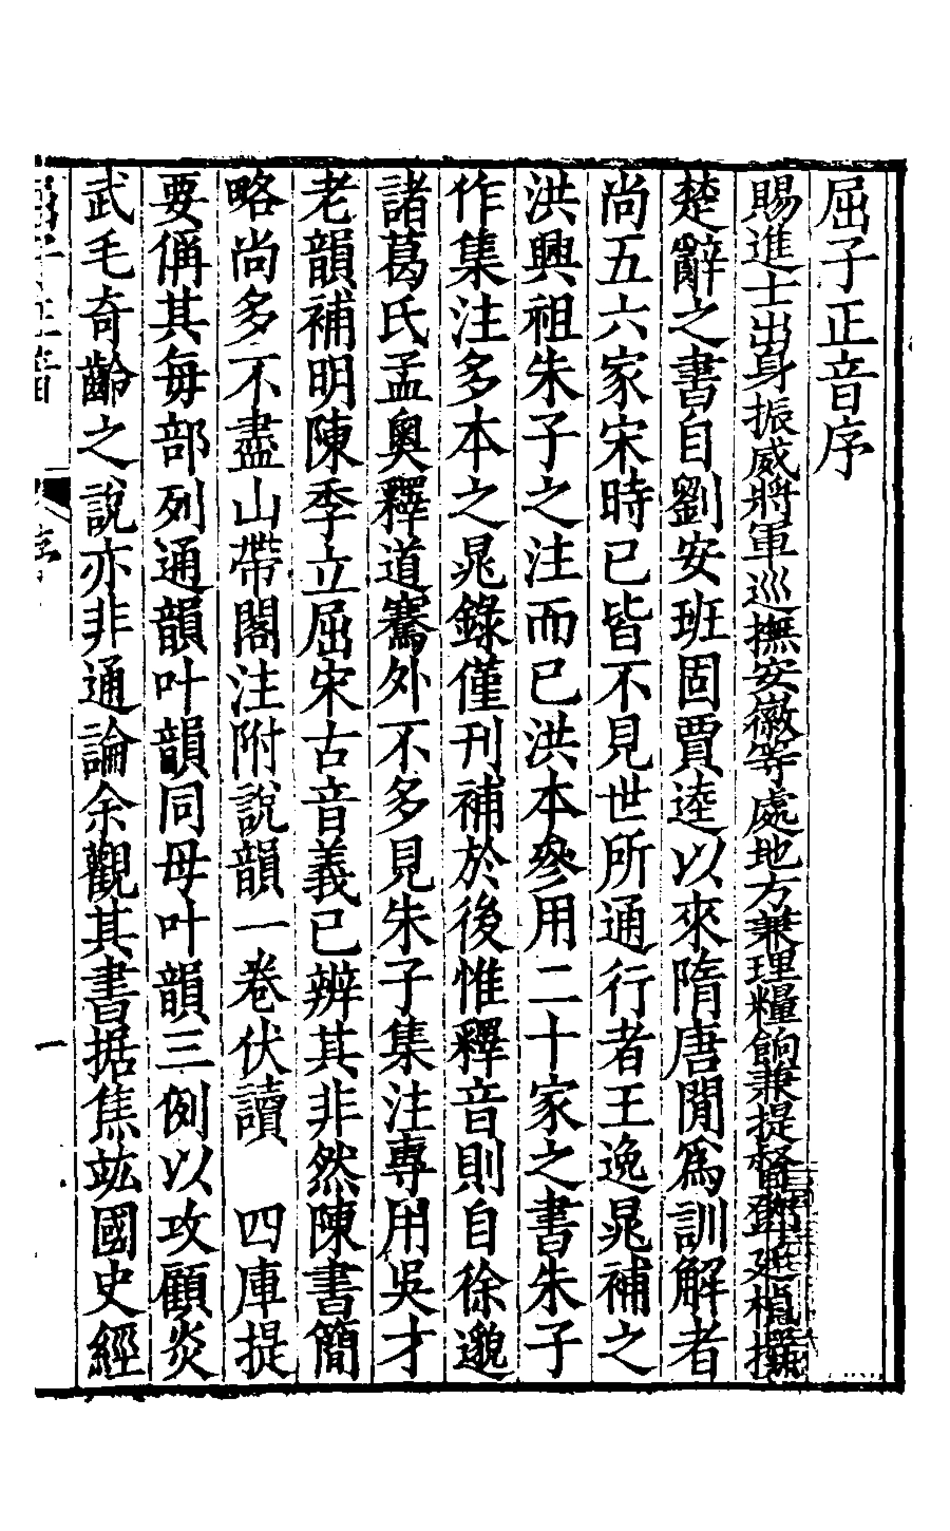 屈子正音序
賜進士出身振威將軍巡撫安徽等處地方兼理糧餉兼提督鄧廷楨撰
楚辭之書自劉安班固賈逵以來隋唐閒爲訓解者
尚五六家宋時已皆不見世所通行者王逸晁補之
洪興祖朱子之注而已洪本參用二十家之書朱子
作集注多本之晁錄僅刊補於後惟釋音則自徐邈
諸葛氏孟奧釋道騫外不多見朱子集注專用吳才
老韻補明陳季立屈宋古音義已辨其非然陳書簡
略尚多不盡山帶閣注附說韻一卷伏讀　四庫提
要偁其每部列通韻叶韻同母叶韻三例以攻顧炎
武毛奇齡之說亦非通論余觀其書据焦竑國史經
屈子正音
序
一